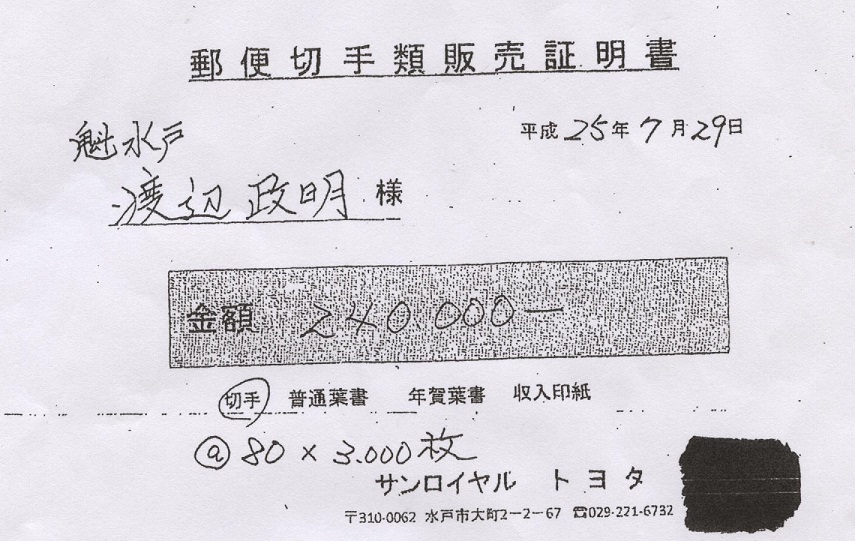 郵便切手類販売証明書
平成25年7月29日
魁水戸
渡辺政明様
金額 240.000―
切手 普通葉書 年賀葉書 収入印紙
@80×3.000枚
サンロイヤル トヨタ
〒310-0062 水戸市大町2-2-67 ☎029-221-6732